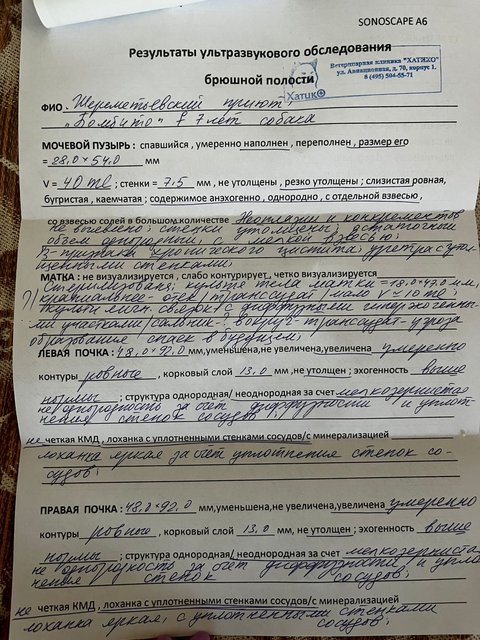 SONOSCAPE A6
Результаты ультразвукового обследования
брюшной полости
Ветеринарная клиника "ХАТИКО"
ул. Авиационная, д. 70, корпус 1.
8 (495) 504-55-71
Хатико
ФИО . Шереметьевский приют,
"Бомбито" 7 лет собака
МОЧЕВОЙ ПУЗЫРЬ : спавшийся , умеренно наполнен , переполнен , размер его
= 28.0 × 54.0 мм
V = 40 ml ; стенки = 7.5 мм , не утолщены , резко утолщены ; слизистая ровная,
бугристая , каемчатая ; содержимое анэхогенно , однородно , с отдельной взвесью ,
со взвесью солей в большом количестве Неоплазии и конкрементов
не выявлено; стенки утолщены; остаточный
объем однородный; с мелкой взвесью;
В-признаки хронического цистита;
стенками;
МАТКА : не визуализируется , слабо контурирует , четко визуализируется
Стерилизована; культя тела матки = 18.0×47.0 мм,
краниальнее - отек / транссудат / мало V ≈ 10 ml;
культи связок с диффузными
участками / сальник -: вокруг - транссудат - угроза
образования спаек в будущем;
ЛЕВАЯ ПОЧКА : 48,0×92,0 мм,уменьшена,не увеличена,увеличена умеренно
контуры ровные , корковый слой 13,0 мм, не утолщен ; эхогенность выше
нормы ; структура однородная/ неоднородная за счет мелкозернистая
неоднородность за счет диффузности и уплот-
нения стенок сосудов
не четкая КМД , лоханка с уплотненными стенками сосудов/с минерализацией
лоханка яркая за счет уплотнения стенок со-
судов;
ПРАВАЯ ПОЧКА : 48,0×92,0 мм,уменьшена,не увеличена,увеличена умеренно
контуры ровные , корковый слой 13,0 мм, не утолщен ; эхогенность выше
нормы ; структура однородная/ неоднородная за счет мелкозерниста
неоднородность за счет диффузности и упло
нение стенок сосудов;
не четкая КМД , лоханка с уплотненными стенками сосудов/с минерализацией
лоханка яркая, с уплотненными стенками
сосудов;